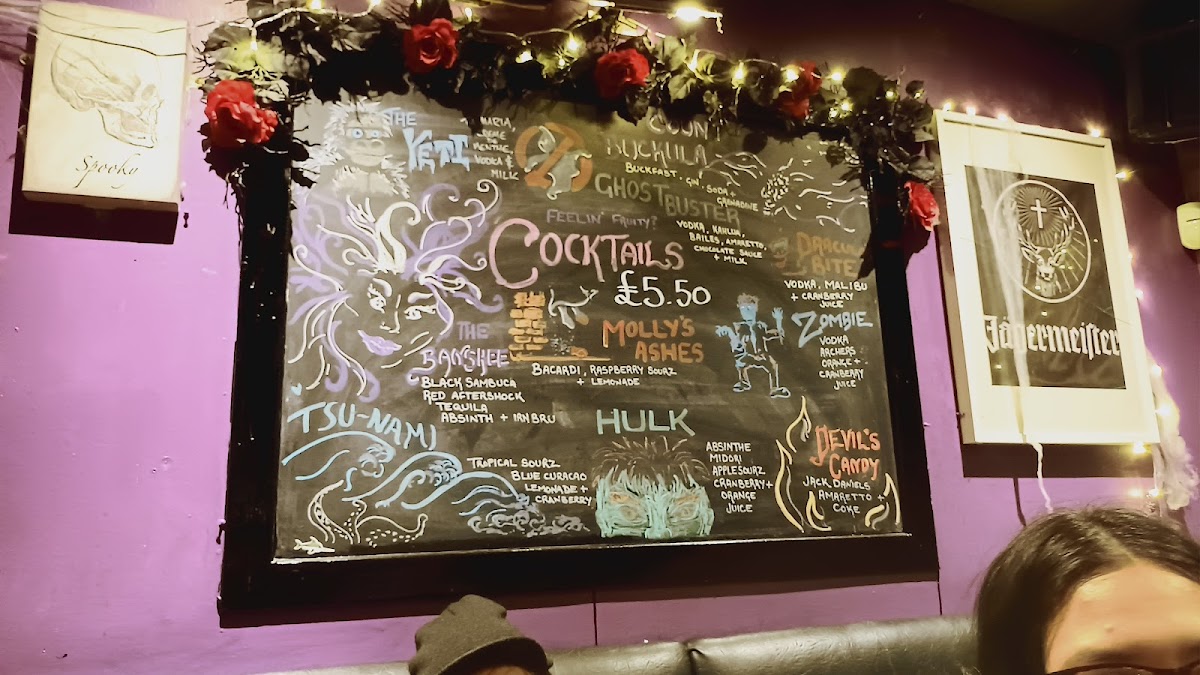 Spooky
THE
YETI
MARIA,
CREME DE
MENTHE,
VODKA &
MILK
COUNT
BUCKULA
BUCKFAST, GIN, SODA +
GRENADINE
GHOSTBUSTER
VODKA, KAHLUA,
BAILES, AMARETTO,
CHOCOLATE SAUCE
+ MILK
FEELIN' FRUITY?
COCKTAILS
£5.50
DRACULA
BITE
VODKA, MALIBU
+ CRANBERRY
JUICE
THE
BANSHEE
BLACK SAMBUCA
RED AFTERSHOCK
TEQUILA
ABSINTH + IRN BRU
MOLLY'S
ASHES
BACARDI, RASPBERRY SOURZ
+ LEMONADE
ZOMBIE
VODKA
ARCHERS
ORANGE +
CRANBERRY
JUICE
TSU-NAMI
TROPICAL SOURZ
BLUE CURACAO
LEMONADE +
CRANBERRY
HULK
ABSINTHE
MIDORI
APPLE SOURZ
CRANBERRY +
ORANGE
JUICE
DEVIL'S
CANDY
JACK DANIELS
AMARETTO +
COKE
Jägermeister